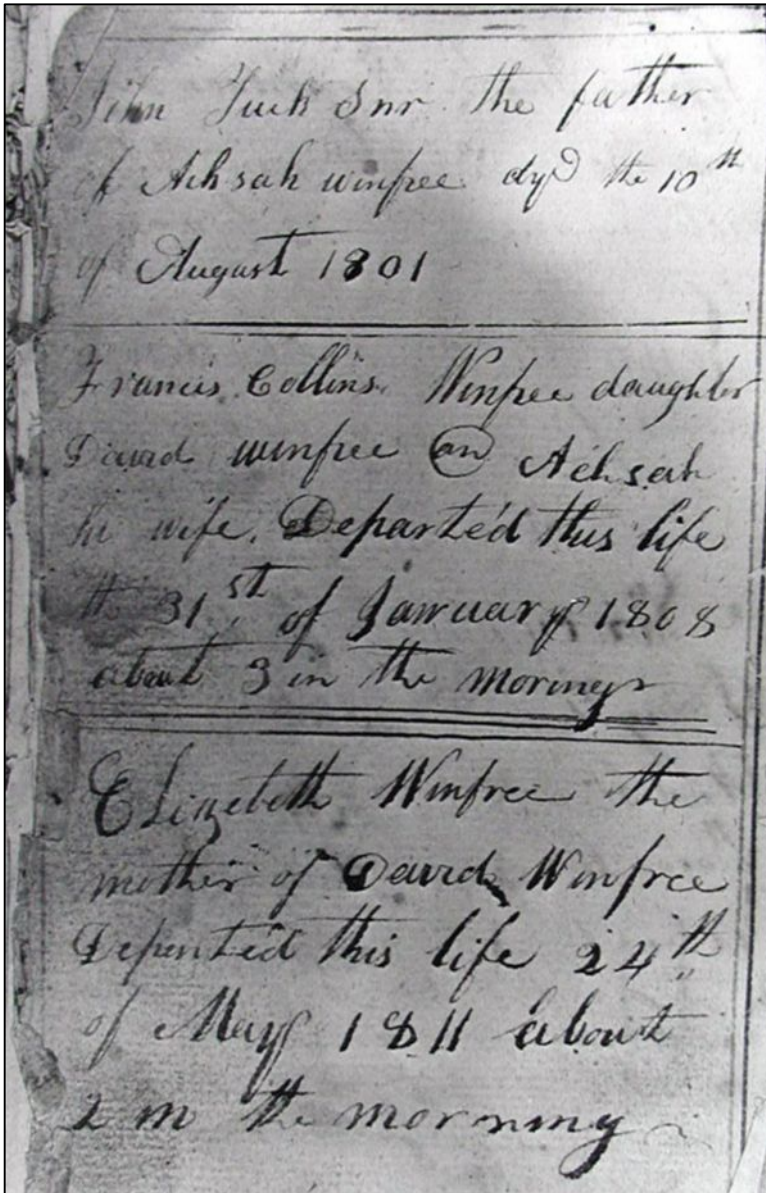 John Tuck Snr the father
of Achsah winfree dyd the 10th
of August 1801
Francis Collins Winfree daughter
David winfree an Achsah
hi wife. Departed this life
th 31st of January 1808
about 3 in the morning
Elizebeth Winfree the
mother of David Winfree
Depented this life 24th
of May 1811 about
2 in the morning